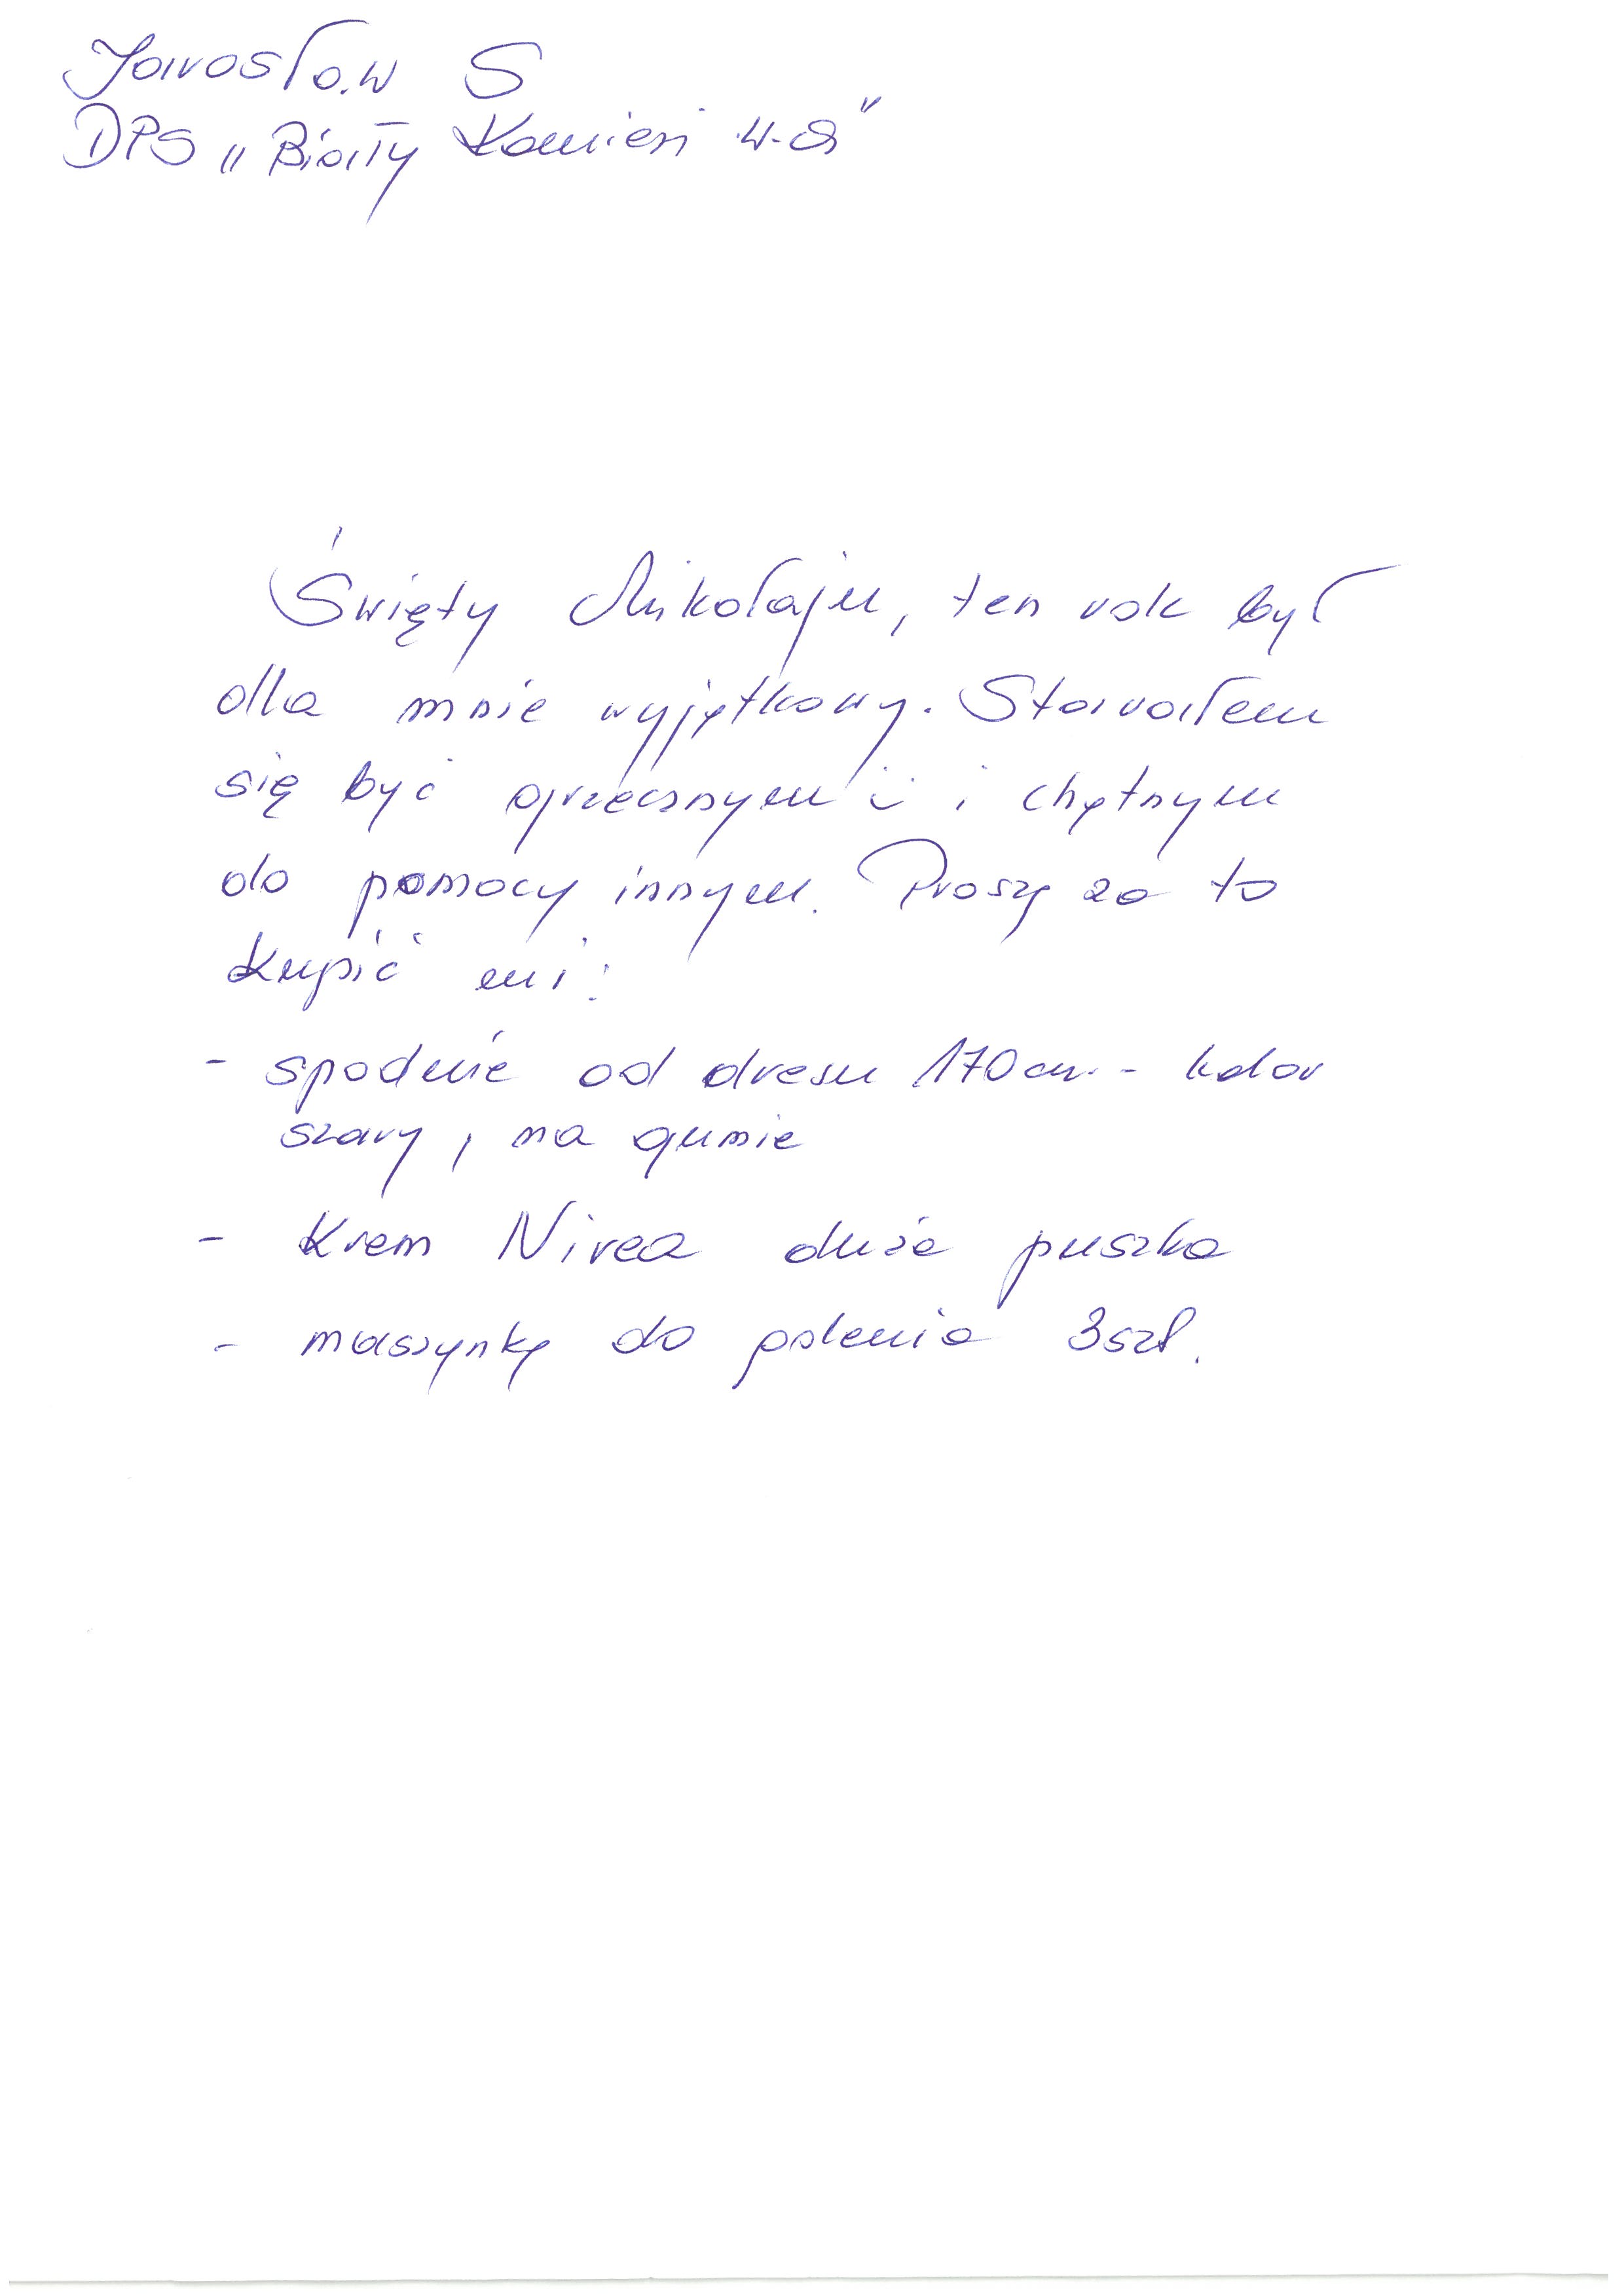 Jarosław S
DPS „Biały Kamień W-ch"
Święty Mikołaju, ten rok był
dla mnie wyjątkowy. Starałem
się być grzecznym i chętnym
do pomocy innym. Proszę za to
kupić mi:
- spodnie od dresu 170 cm. - kolor
szary, na gumie
- Krem Nivea duża puszka
- maszynkę do golenia 3 szt.